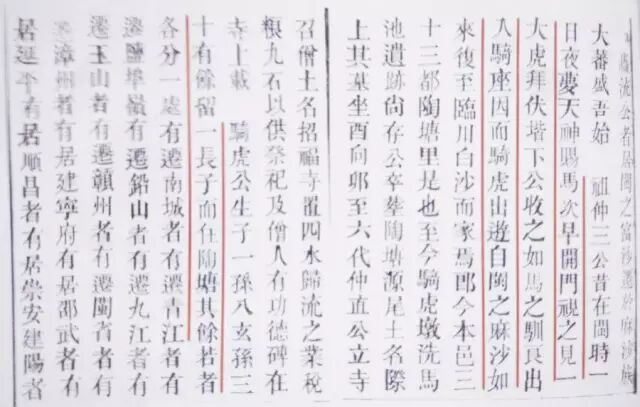 流公者居閩之富沙遷於麻沙族
大蕃盛吾始 祖仲三公昔在閩時一
日夜夢天神賜馬次早開門視之見一
大虎拜伏堦下公收之如馬之馴良出
入騎座因而騎虎出遊自閩之麻沙如
來後至臨川白沙而家焉即今本邑三
十三都陶塘里是也至今騎虎墩洗馬
池遺跡尙存公卒塟陶塘源尾土名際
上其墓坐酉向卯至六代仲直公立寺
召僧土名招福寺置四水歸流之業稅
糧九石以供祭祀及僧人有功德碑在
寺上載 騎虎公生子一孫八玄孫三
十有餘留一長子而住陶塘其餘若者
各分一處有遷南城者有遷青江者有
遷鹽埠嶺者有遷鉛山者有遷九江者有
遷玉山者有遷贑州者有遷閩省者有
遷漳州者有居建寧府有居邵武者有
居延平有居順昌者有居崇安建陽者